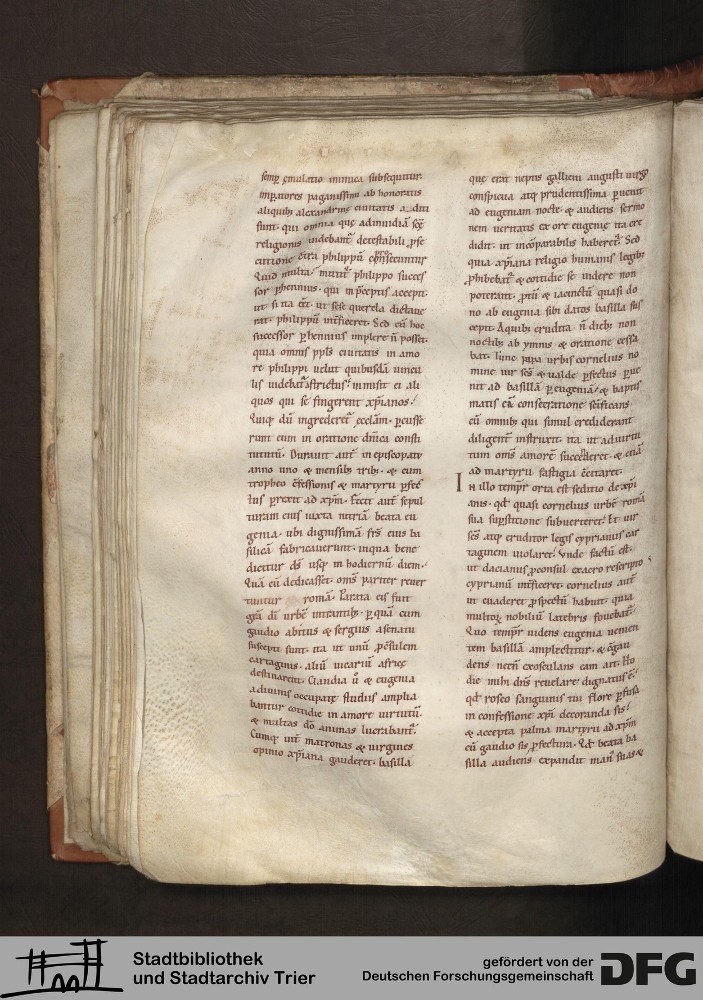 semp̄ ęmulatio inimica subsequitur.
imp̄atores paganissimi ab honoratis
aliquib; alexandrinę ciuitatis auditi
sunt. qui omnia quę ad inuidiā scę̄
religionis uidebant̄ detestabili ꝑse
cutione ctra philippū
Quid multa? mittit̄ philippo succes
sor ꝑhennius. qui in p̄ceptis accepit.
ut si ita eēt. ut sese querela dictaue
rat. philippū int̄ficeret. Sed cū hoc
successor ꝑhennius implere n̄ posset.
quia omnis ppl̄s ciuitatis in amo
re philippi uelut quibusdā uincu
lis uidebat̄ astrictus. inmisit ei ali
quos qui se fingerent xp̄ianos.
Quiq; dū ingrederet̄ ęcclām. ꝑcusse
runt eum in oratione diuīca consti
tutū. Durauit aut̄ in episcopatu
anno uno & mensib; trib;. & cum
tropheo cfessionis & martyrii ꝑfec
tus ꝑrexit ad xp̄m. Fecit aut̄ sepul
turam eius iuxta nitriā beata eu
genia. ubi dignissimā frs̄ eius ba
silicā fabricauerunt. in qua bene
dicitur ds̄ usq; in hodiernū diem.
Quā cū dedicasset. oms̄ pariter reuer
tuntur romā. Parata eis fuit
grā di urbē intrantib;. ꝑ quā cum
gaudio abitus & sergius a senatu
suscepti sunt. ita ut unū ꝓc̄sulem
cartaginis. aliū uicariū africę
destinarent. Claudia ū & eugenia
a diuinis occupatę studiis amplia
bantur cottidie in amore uirtutū.
& multas dō animas lucrabant̄.
Cumq; uni matronas & uirgines
opinio xp̄iana gauderet. basilla
que erat neptis gallieni augusti uirgo
conspicua atq; prudentissima ꝑuenit
ad eugeniam nocte. & audiens sermo
nem ueritatis ex ore eugenię ita cre
didit. ut incōparabilis haberet̄. Sed
quia xp̄iana religio humanis legib;
ꝓhibebat̄ & cottidie se uidere non
poterant. ꝓtū & iacinctū quasi do
no ab eugenia sibi datos basilla sus
cepit. A quib; erudita n̄ dieb; non
noctib; ab ymnis & oratione cessa
bat. Tunc papa urbis cornelius no
mine uir scs̄ & ualde ꝑfectus ꝑue
nit ad basillā ꝑ eugeniā. & baptis
matis eā consecratione scīficans.
cū omnib; qui simul crediderant
diligent̄ instruxit. ita ut ad uirtu
tum oms̄ amorē succederet. & etiā
ad martyrii fastigia c̄citaret.
In illo tempr̄ orta est seditio de xp̄i
anis. qd̄ quasi cornelius urbē romā
sua suꝑstitione subuerteret. Et uir
scs̄ atq; eruditor legis cyprianus car
taginem uiolaret. Vnde factū est.
ut dacianus ꝓconsul ex sacro rescripto
cyprianū int̄ficeret. cornelius aut̄
ut euaderet ꝓspectū habuit. quia
multoꝝ nobiliū latebris fouebat̄.
Quo tempr̄ uidens eugenia uenien
tem basillā amplectitur. & c̄gau
dens necn̄ exosculans eam ait. Ho
die mihi dns̄ reuelare dignatus ē.
qd̄ roseo sanguinis tui flore ꝑfusa
in confessione xp̄i decoranda sis.
& accepta palma martyrii ad xp̄m
cū gaudio sis ꝓfectura. Qd̄ beata ba
silla audiens expandit man' suas &
Stadtbibliothek
und Stadtarchiv Trier
gefördert von der
Deutschen Forschungsgemeinschaft
DFG